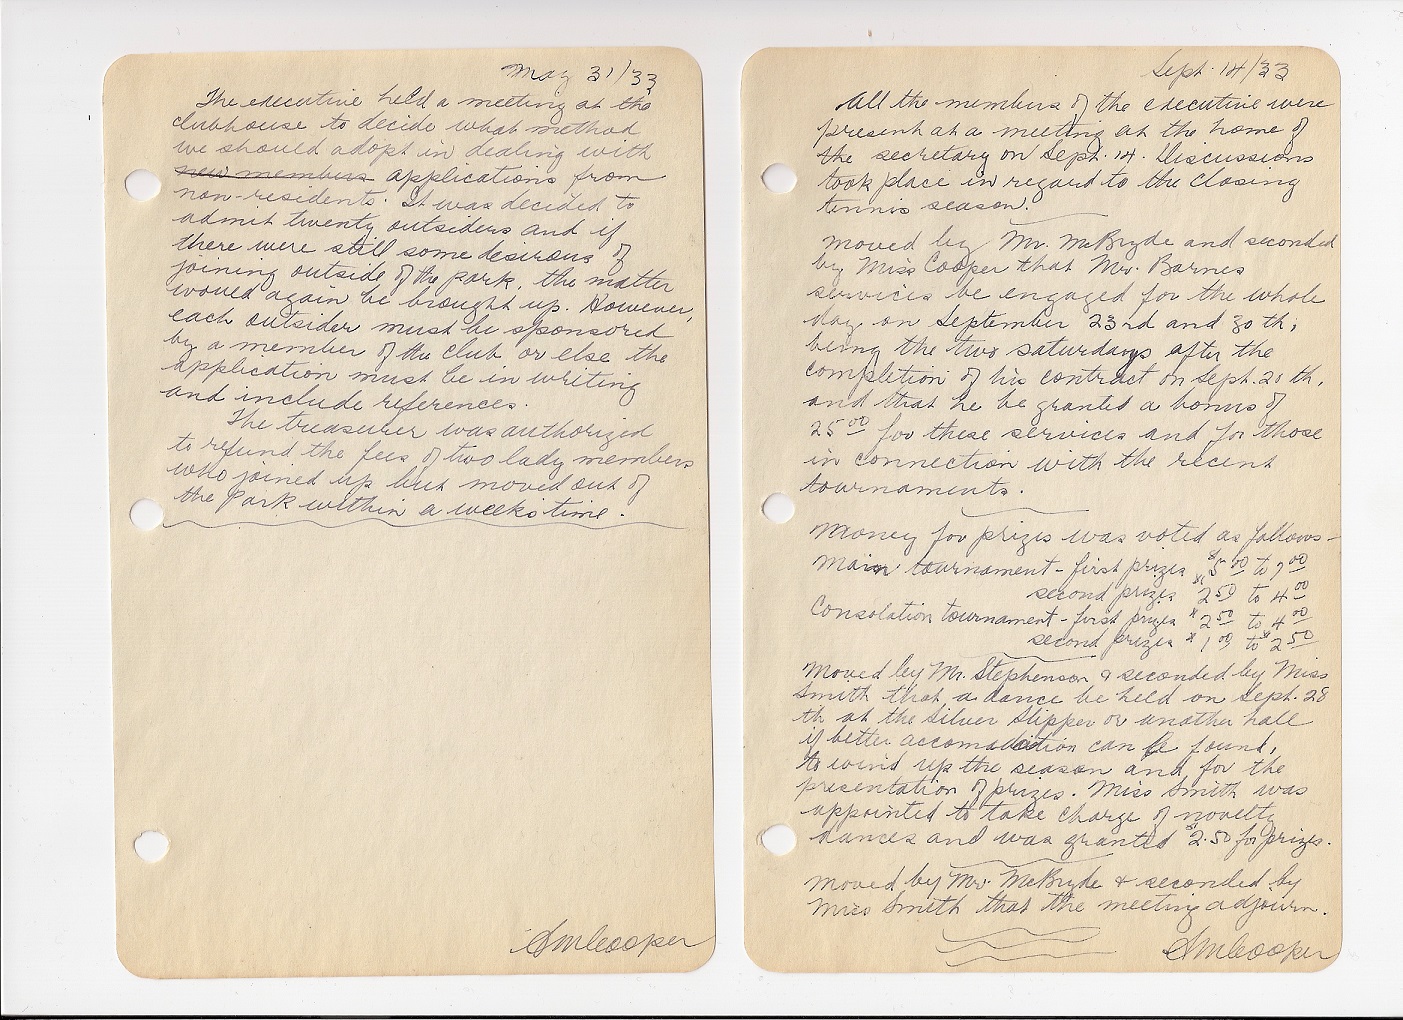 May 31/33
The executive held a meeting at the
clubhouse to decide what method
we should adopt in dealing with
new members applications from
non-residents. It was decided to
admit twenty outsiders and if
there were still some desirous of
joining outside of the park, the matter
would again be brought up. However,
each outsider must be sponsored
by a member of the club or else the
application must be in writing
and include references.
The treasurer was authorized
to refund the fees of two lady members
who joined up but moved out of
the Park within a weeks time.
SMCooper
Sept. 14/33
All the members of the executive were
present at a meeting at the home of
the secretary on Sept. 14. Discussions
took place in regard to the closing
tennis season.
Moved by Mr. McBryde and seconded
by Miss Cooper that Mr. Barnes
services be engaged for the whole
day on September 23rd and 30th,
being the two saturdays after the
completion of his contract on Sept. 20th,
and that he be granted a bonus of
25.00 for these services and for those
in connection with the recent
tournaments.
Money for prizes was voted as follows-
Main tournament - first prizes $5.00 to 7.00
second prizes $2.50 to 4.00
Consolation tournament - first prizes $2.50 to 4.00
second prizes $1.00 to $2.50
Moved by Mr. Stephenson & seconded by Miss
Smith that a dance be held on Sept. 28
th at the Silver Slipper or another hall
if better accomodation can be found,
to wind up the season and for the
presentation of prizes. Miss Smith was
appointed to take charge of novelty
dances and was granted $2.50 for prizes.
Moved by Mr. McBryde & seconded by
Miss Smith that the meeting adjourn.
SMCooper